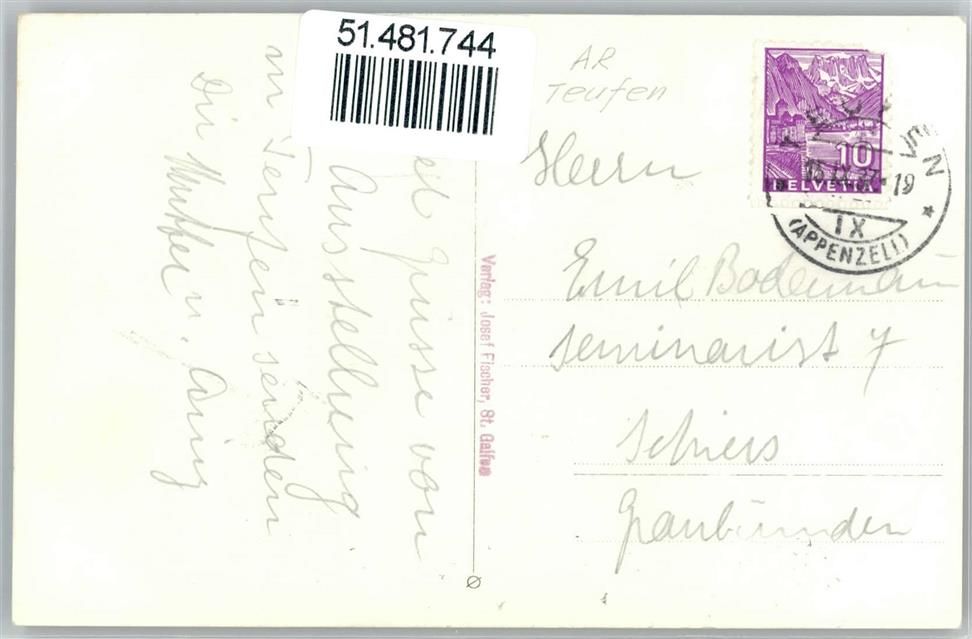 51.481.744
AR
Teufen
10
HELVETIA
IX
(APPENZELL)
Herrn
Emil Bodenmann
Seminarist 7
Schiers
Graubünden
Verlag: Josef Fischer, St. Gallen
Grüsse von
Ausstellung
in Teufen senden
Die Mutter u.